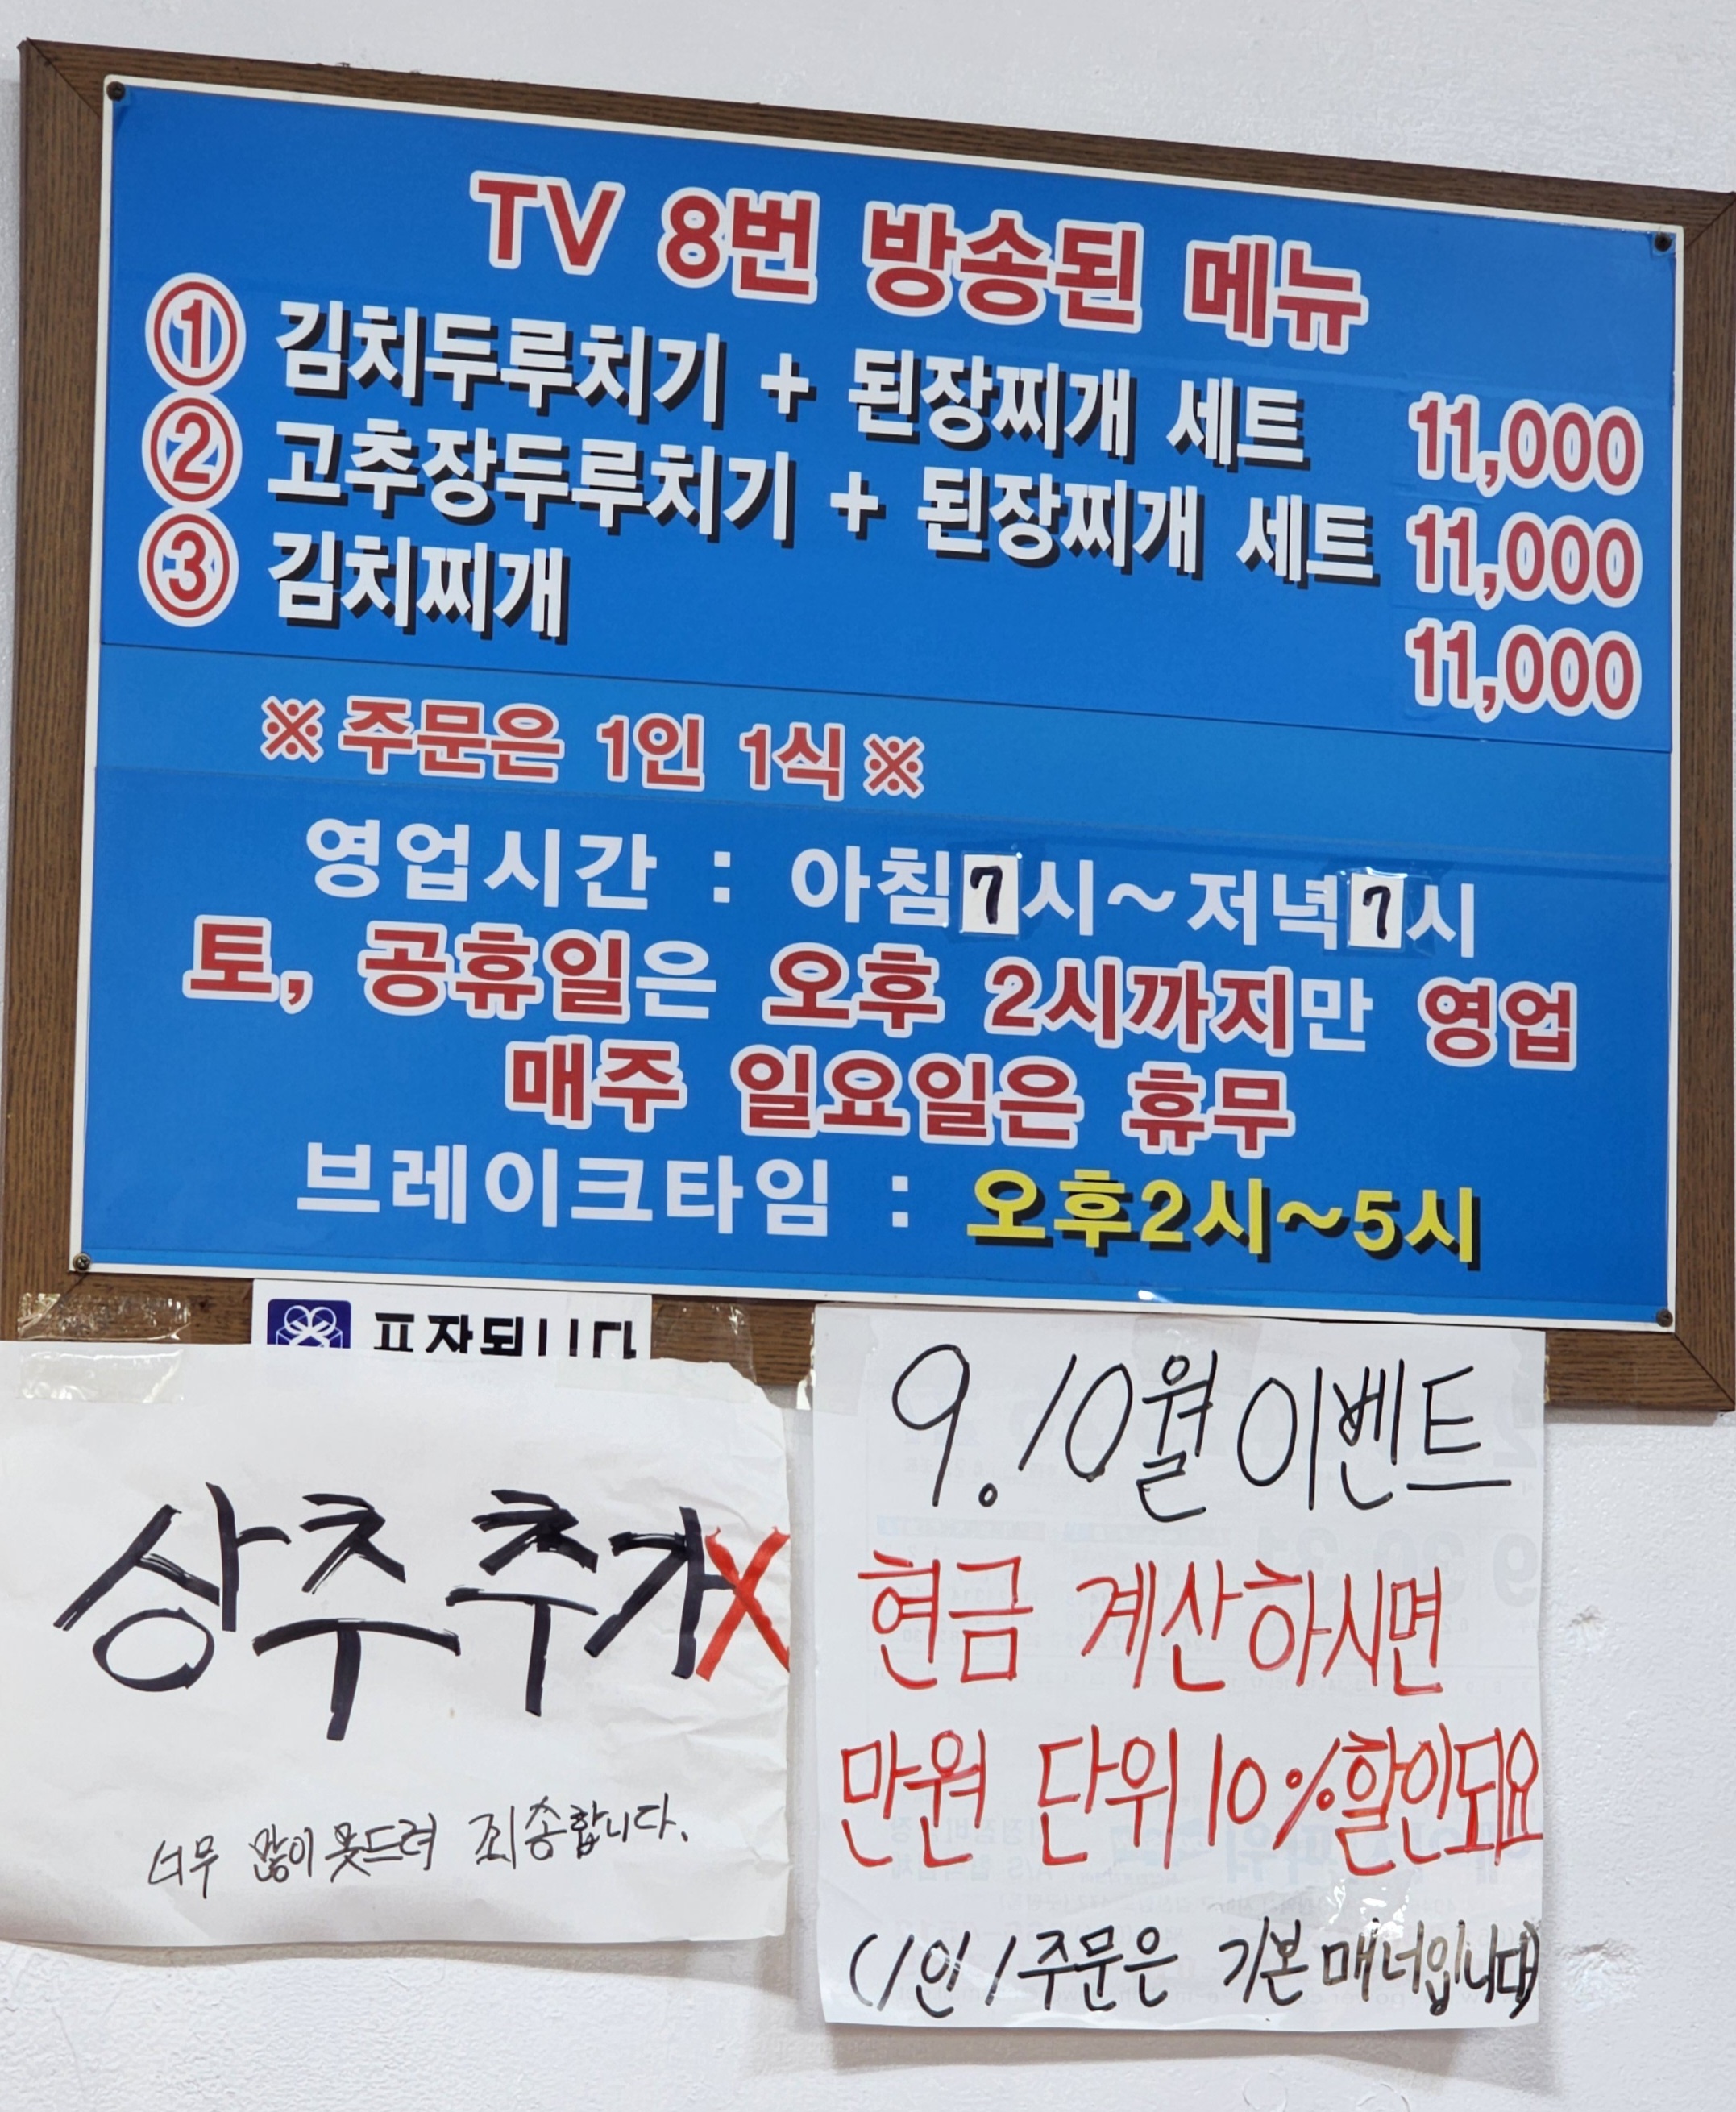 TV 8번 방송된 메뉴
① 김치두루치기 + 된장찌개 세트 11,000
② 고추장두루치기 + 된장찌개 세트 11,000
③ 김치찌개 11,000
※주문은 1인 1식※
영업시간 : 아침7시~저녁7시
토, 공휴일은 오후 2시까지만 영업
매주 일요일은 휴무
브레이크타임 : 오후2시~5시
상추추가X
너무 많이 못드려 죄송합니다.
9.10월 이벤트
현금 계산하시면
만원 단위 10%할인되요
(1인 1주문은 기본매너입니다)